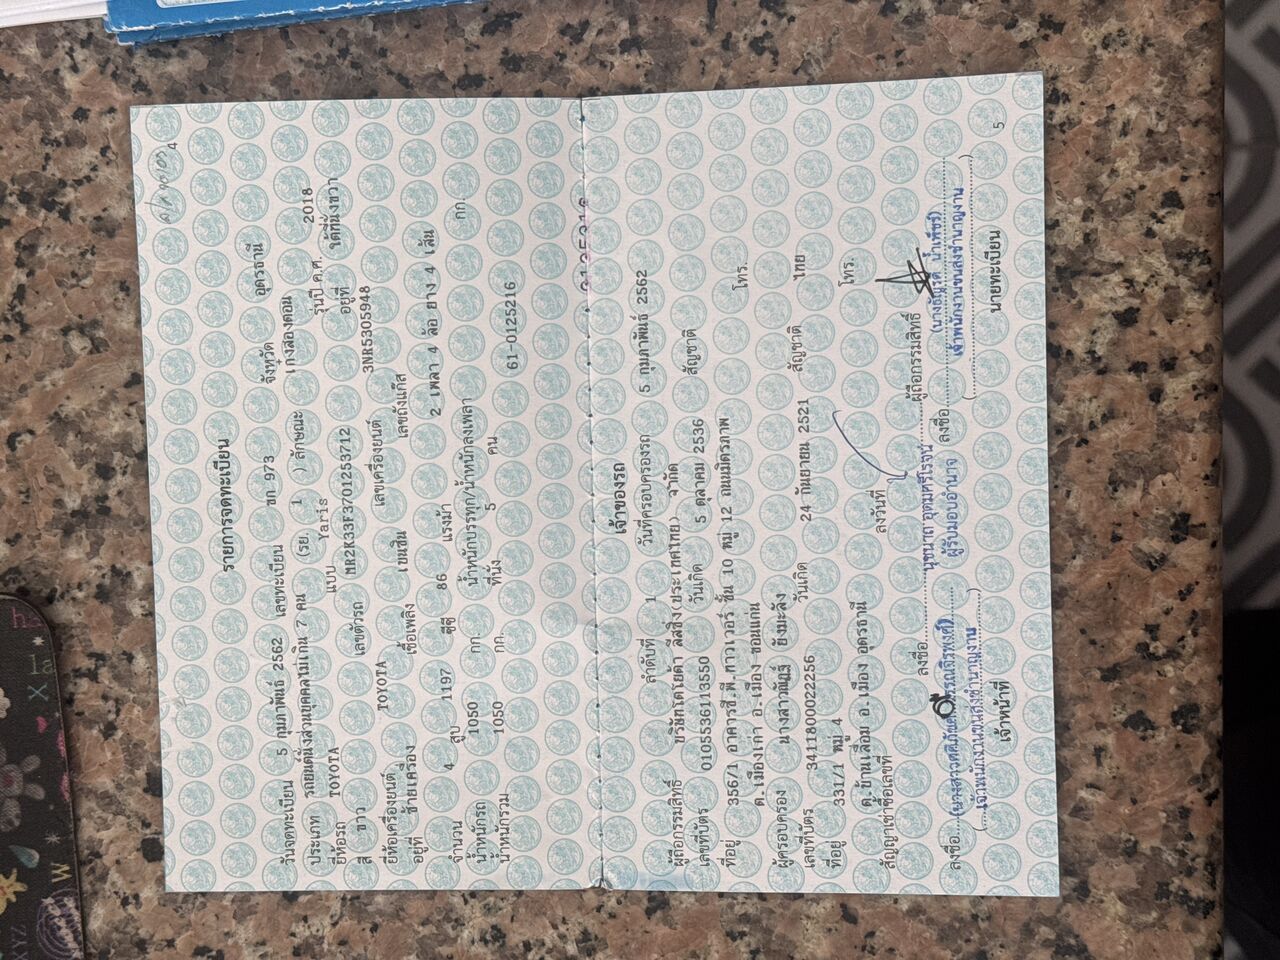 4
รายการจดทะเบียน
วันจดทะเบียน 5 กุมภาพันธ์ 2562 เลขทะเบียน ขก 973 จังหวัด อุดรธานี
ประเภท รถยนต์นั่งส่วนบุคคลไม่เกิน 7 คน (รย. 1 ) ลักษณะ เก๋งสองตอน
ยี่ห้อรถ TOYOTA แบบ Yaris รุ่นปี ค.ศ. 2018
สี ขาว เลขตัวรถ MR2K33F3701253712 อยู่ที่ ใต้ที่นั่งขวา
ยี่ห้อเครื่องยนต์ TOYOTA เลขเครื่องยนต์ 3NR5305948
อยู่ที่ ซ้ายเครื่อง เชื้อเพลิง เบนซิน เลขถังแก๊ส
จำนวน 4 สูบ 1197 ซีซี 86 แรงม้า 2 เพลา 4 ล้อ ยาง 4 เส้น
น้ำหนักรถ 1050 กก. น้ำหนักบรรทุก/น้ำหนักลงเพลา กก.
น้ำหนักรวม 1050 กก. ที่นั่ง 5 คน 61-0125216
เจ้าของรถ
ลำดับที่ 1 วันที่ครอบครองรถ 5 กุมภาพันธ์ 2562
ผู้ถือกรรมสิทธิ์ บริษัทโตโยต้า ลีสซิ่ง(ประเทศไทย) จำกัด
เลขที่บัตร 0105536113550 วันเกิด 5 ตุลาคม 2536 สัญชาติ
ที่อยู่ 356/1 อาคารซี.พี.ทาวเวอร์ ชั้น 10 หมู่ 12 ถนนมิตรภาพ
ต.เมืองเก่า อ.เมือง ขอนแก่น โทร.
ผู้ครอบครอง นางสาววัฒน์รี ยังมะลัง
เลขที่บัตร 3411800022256 วันเกิด 24 กันยายน 2521 สัญชาติ ไทย
ที่อยู่ 331/1 หมู่ 4
ต.บ้านเลื่อม อ.เมือง อุดรธานี โทร.
สัญญาเช่าซื้อเลขที่ ลงวันที่
ลงชื่อ นุชนาถ อุดมศรีโรจน์ ผู้ถือกรรมสิทธิ์
ผู้รับมอบอำนาจ
ลงชื่อ
เจ้าพนักงานขนส่งชำนาญงาน
เจ้าหน้าที่
ลงชื่อ
เจ้าพนักงานขนส่งชำนาญงาน
นายทะเบียน
5